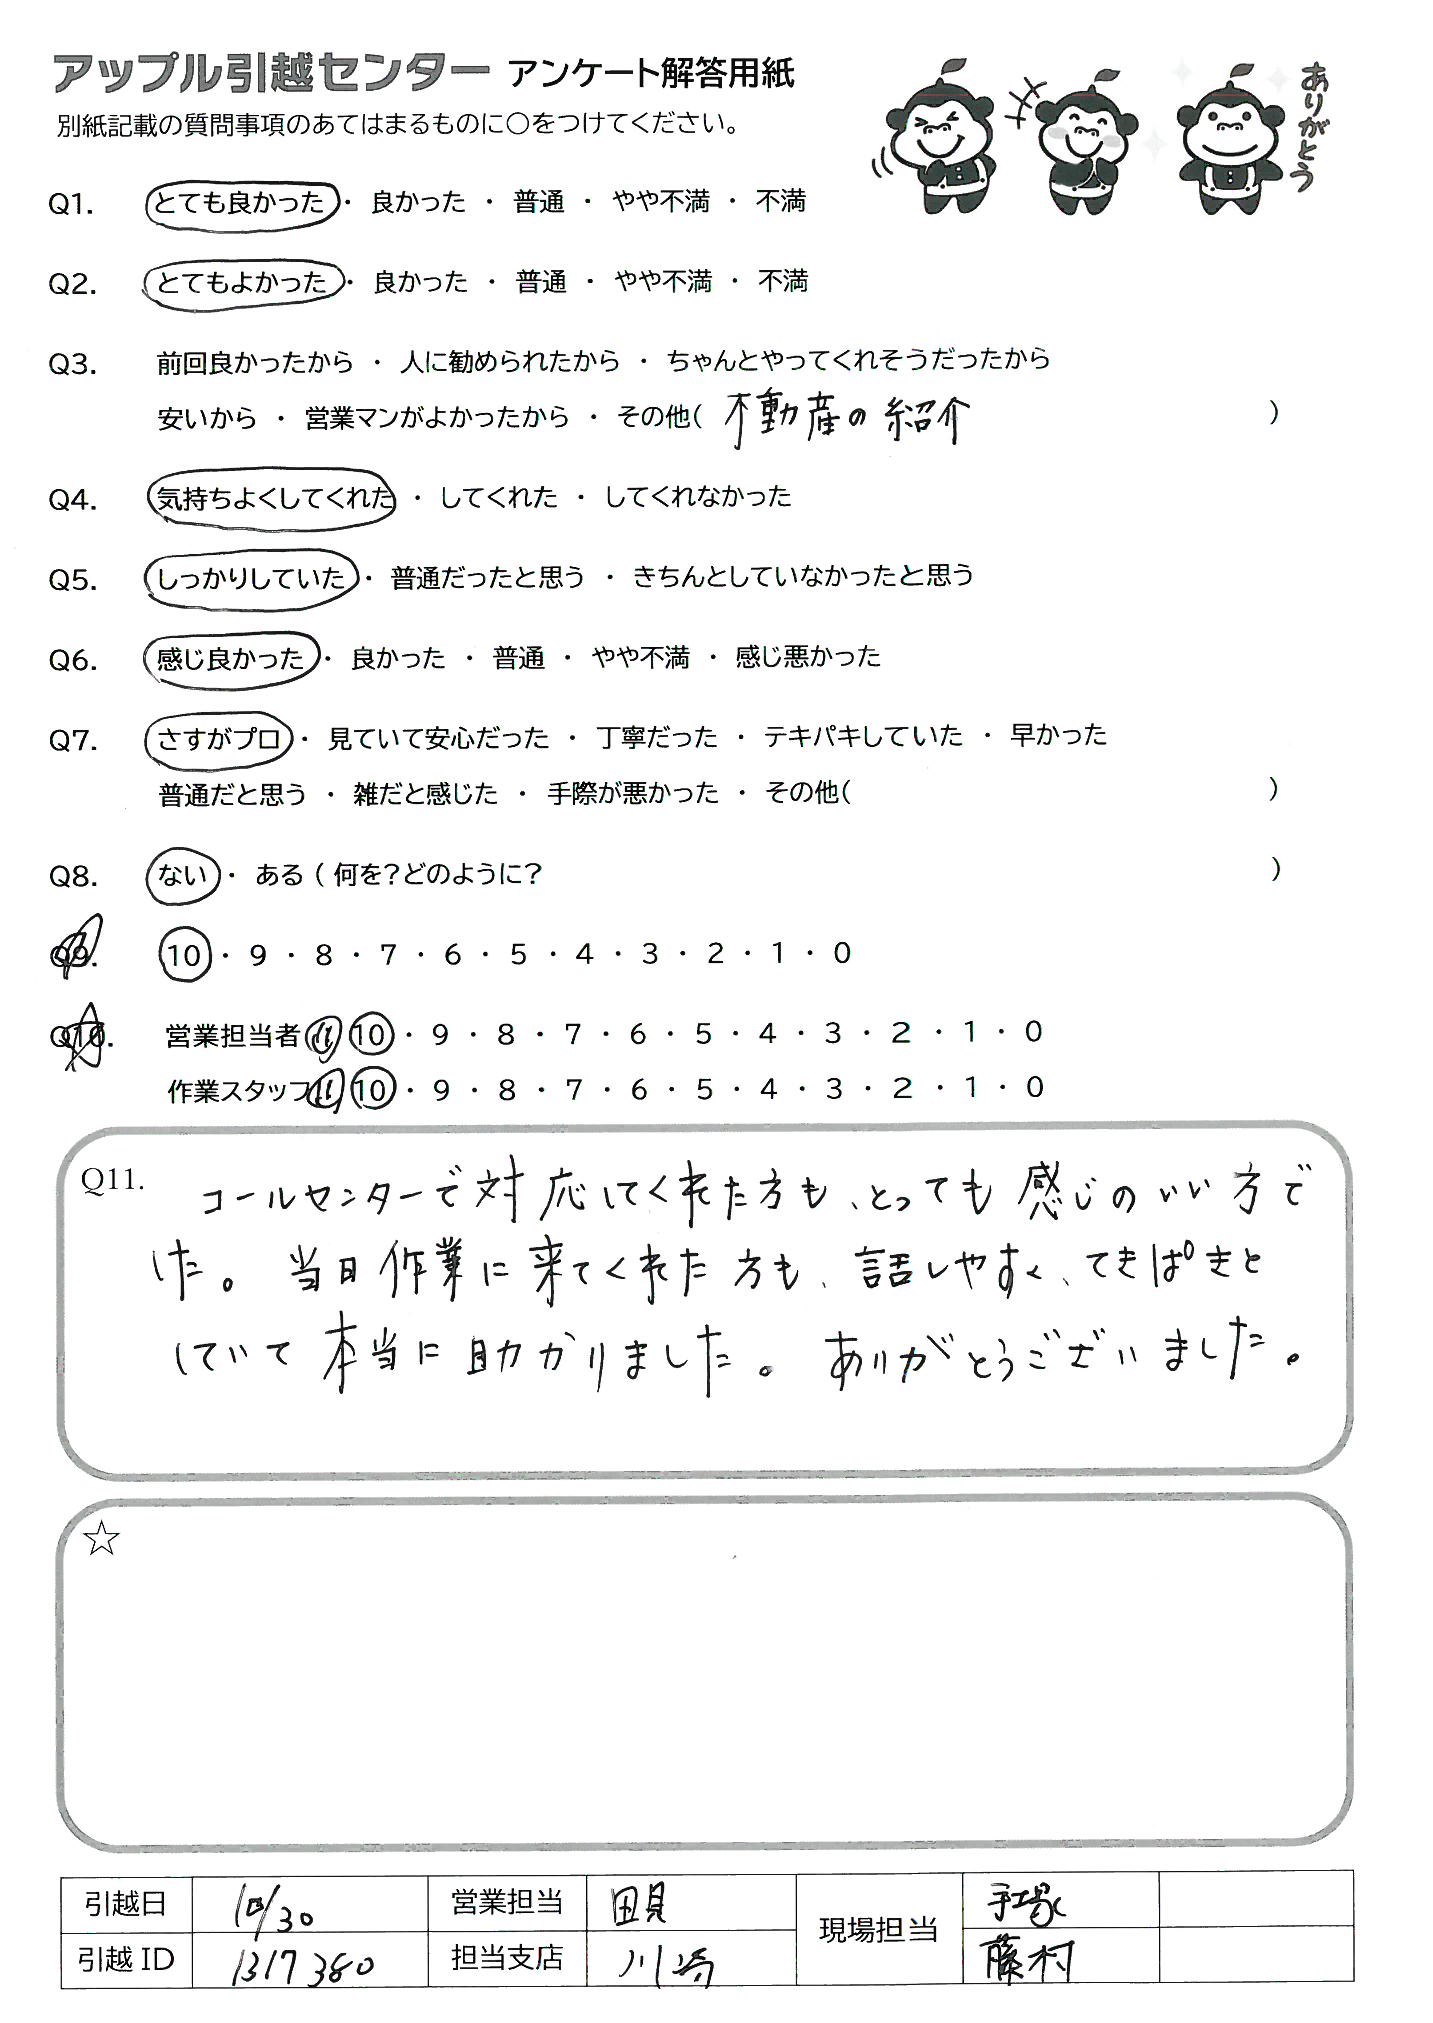 アップル引越センター アンケート解答用紙
ありがとう
別紙記載の質問事項のあてはまるものに○をつけてください。
Q1. とても良かった ・ 良かった ・ 普通 ・ やや不満 ・ 不満
Q2. とてもよかった ・ 良かった ・ 普通 ・ やや不満 ・ 不満
Q3. 前回良かったから ・ 人に勧められたから ・ ちゃんとやってくれそうだったから
安いから ・ 営業マンがよかったから ・ その他( 不動産の紹介 )
Q4. 気持ちよくしてくれた ・ してくれた ・ してくれなかった
Q5. しっかりしていた ・ 普通だったと思う ・ きちんとしていなかったと思う
Q6. 感じ良かった ・ 良かった ・ 普通 ・ やや不満 ・ 感じ悪かった
Q7. さすがプロ ・ 見ていて安心だった ・ 丁寧だった ・ テキパキしていた ・ 早かった
普通だと思う ・ 雑だと感じた ・ 手際が悪かった ・ その他( )
Q8. ない ・ ある ( 何を?どのように? )
Q9. 10 ・ 9 ・ 8 ・ 7 ・ 6 ・ 5 ・ 4 ・ 3 ・ 2 ・ 1 ・ 0
Q10. 営業担当者 11 10 ・ 9 ・ 8 ・ 7 ・ 6 ・ 5 ・ 4 ・ 3 ・ 2 ・ 1 ・ 0
作業スタッフ 11 10 ・ 9 ・ 8 ・ 7 ・ 6 ・ 5 ・ 4 ・ 3 ・ 2 ・ 1 ・ 0
Q11. コールセンターで対応してくれた方も、とっても感じのいい方で
した。当日作業に来てくれた方も、話しやすく、てきぱきと
していて本当に助かりました。ありがとうございました。
☆
引越日 10/30 営業担当 田見 現場担当 手塚
引越ID 1317380 担当支店 川崎 藤村